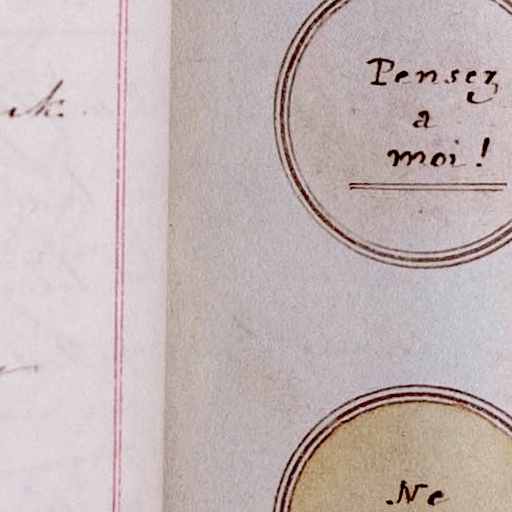 Pensez
a
moi!
Ne